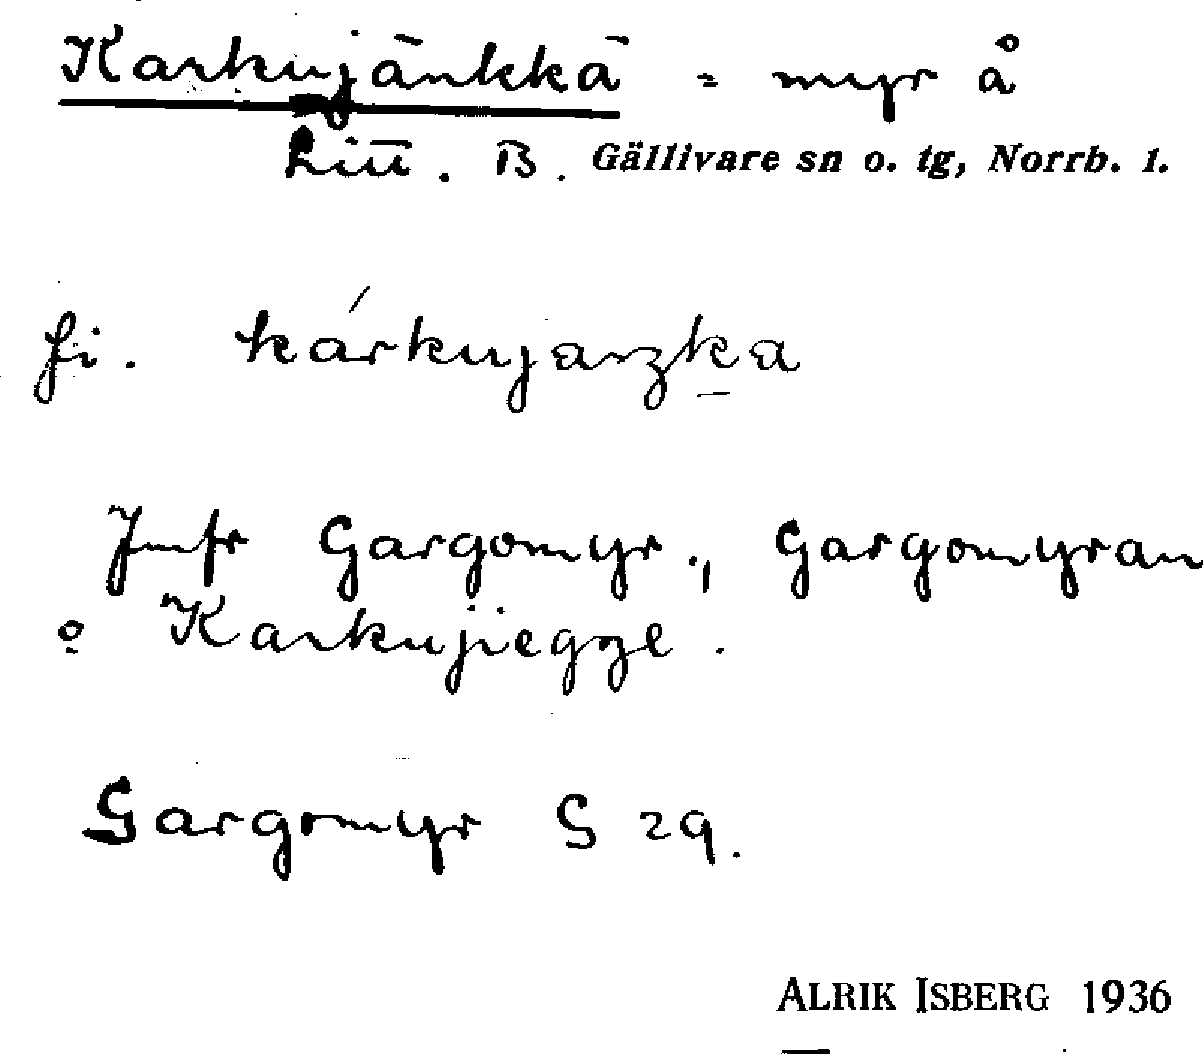 Karkujänkkä = myr å
Litt. B. Gällivare sn o. tg, Norrb. l.
fi. kárkujaŋka
Jmfr Gargomyr, Gargomyran
o Karkujiegge.
Gargomyr S 29.
ALRIK ISBERG 1936